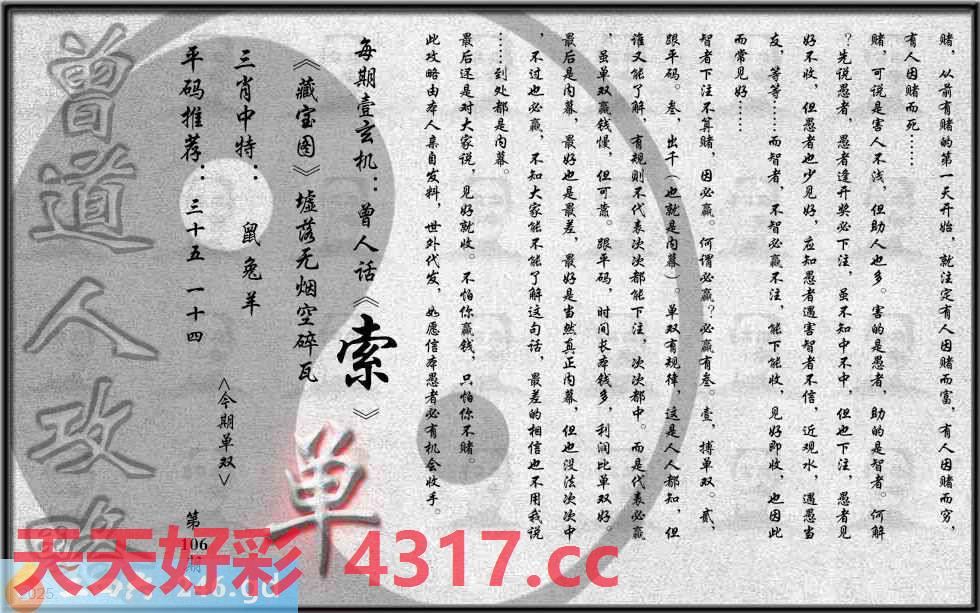 赌，从前有赌的第一天开始，就注定有人因赌而富，有人因赌而穷，
有人因赌而死……
赌，可说是害人不浅，但助人也多。害的是愚者，助的是智者。何解
？先说愚者，愚者逢开奖必下注，虽不知中不中，但也下注，愚者见
好不收，但愚者也少见好，应知愚者遇害智者不信，近观水，遇愚当
友，等等……而智者，不智必赢不注，能下能收，见好即收，也因此
而常见好……
智者下注不算赌，因必赢。何谓必赢？必赢有叁。壹，搏单双。贰，
跟平码。叁，出千（也就是内幕）。单双有规律，这是人人都知，但
谁又能了解，有规则不代表次次都能下注，次次都中。而是代表必赢
，虽单双赢钱慢，但可靠。跟平码，时间长本钱多，利润比单双好。
最后是内幕，最好也是最差，最好是当然真正内幕，但也没法次次中
，不过也必赢，不知大家能不能了解这句话，最差的相信也不用我说
……到处都是内幕。
最后还是对大家说，见好就收。不怕你赢钱，只怕你不赌。
此攻略由本人亲自发料，世外代发，如愿信本愚者必有机会收手。
每期壹玄机：曾人话《索》
《藏宝图》墟落无烟空碎瓦
三肖中特：鼠兔羊
平码推荐：三十五 一十四
<今期单双>
单
曾道人攻略
第
106
期
天天好彩 4317.cc
2025
246.gd